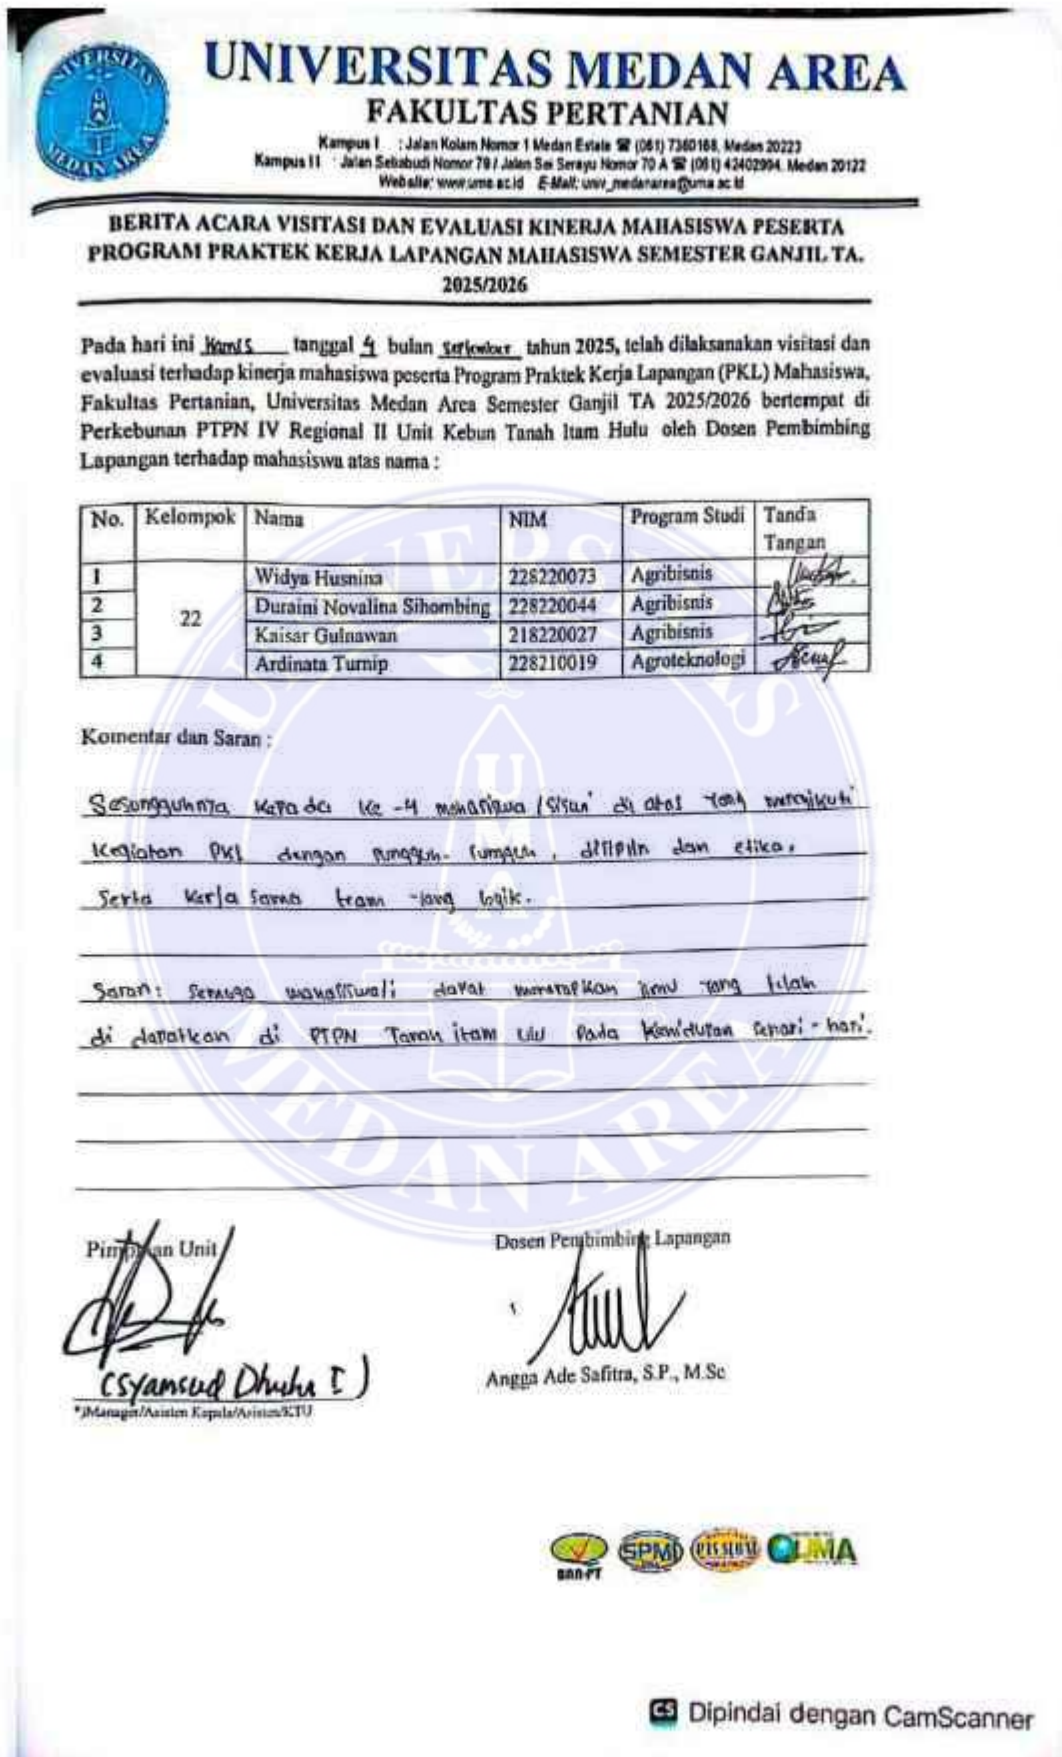 UNIVERSITAS MEDAN AREA
FAKULTAS PERTANIAN
Kampus I : Jalan Kolam Nomor 1 Medan Estate ☎ (061) 7360168, Medan 20223
Kampus II : Jalan Setiabudi Nomor 79 / Jalan Sei Serayu Nomor 70 A ☎ (061) 42402994, Medan 20122
Website: www.uma.ac.id E-Mail: univ_medanarea@uma.ac.id
UNIVERSITAS MEDAN AREA
BERITA ACARA VISITASI DAN EVALUASI KINERJA MAHASISWA PESERTA
PROGRAM PRAKTEK KERJA LAPANGAN MAHASISWA SEMESTER GANJIL TA.
2025/2026
Pada hari ini Kamis tanggal 4 bulan September tahun 2025, telah dilaksanakan visitasi dan
evaluasi terhadap kinerja mahasiswa peserta Program Praktek Kerja Lapangan (PKL) Mahasiswa,
Fakultas Pertanian, Universitas Medan Area Semester Ganjil TA 2025/2026 bertempat di
Perkebunan PTPN IV Regional II Unit Kebun Tanah Itam Hulu oleh Dosen Pembimbing
Lapangan terhadap mahasiswa atas nama :
No. Kelompok Nama NIM Program Studi Tanda Tangan
1 Widya Husnina 228220073 Agribisnis
2 Duraini Novalina Sihombing 228220044 Agribisnis
22
3 Kaisar Gulnawan 218220027 Agribisnis
4 Ardinata Turnip 228210019 Agroteknologi
Komentar dan Saran :
Sesungguhnya kepada ke-4 mahasiswa / di atas yang mengikuti
Kegiatan PKL dengan , disiplin dan etika.
Serta Kerja sama team yang
Saran: Semoga dapat menerapkan ilmu yang telah
di dapatkan di PTPN itam Pada sehari-hari.
Pimpinan Unit
Dosen Pembimbing Lapangan
(Syamsud Dhuha I)
Angga Ade Safitra, S.P., M.Sc
*)Manager/Asisten Kepala/Asisten/KTU
UNIVERSITAS MEDAN AREA
UMA
BAN-PT SPMI UMA
CS Dipindai dengan CamScanner